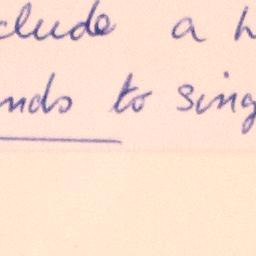 clude a h
nds to sing